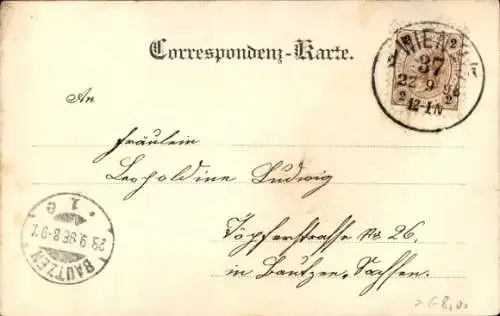 Correspondenz-Karte.
WIEN
2 2
37
22 9 98
2 2
12-1N
An
Fräulein
Leopoldine Ludwig
Töpferstrasse No 26.
in Bautzen, Sachsen.
BAUTZEN
1 e
23.9.98.8-9V.